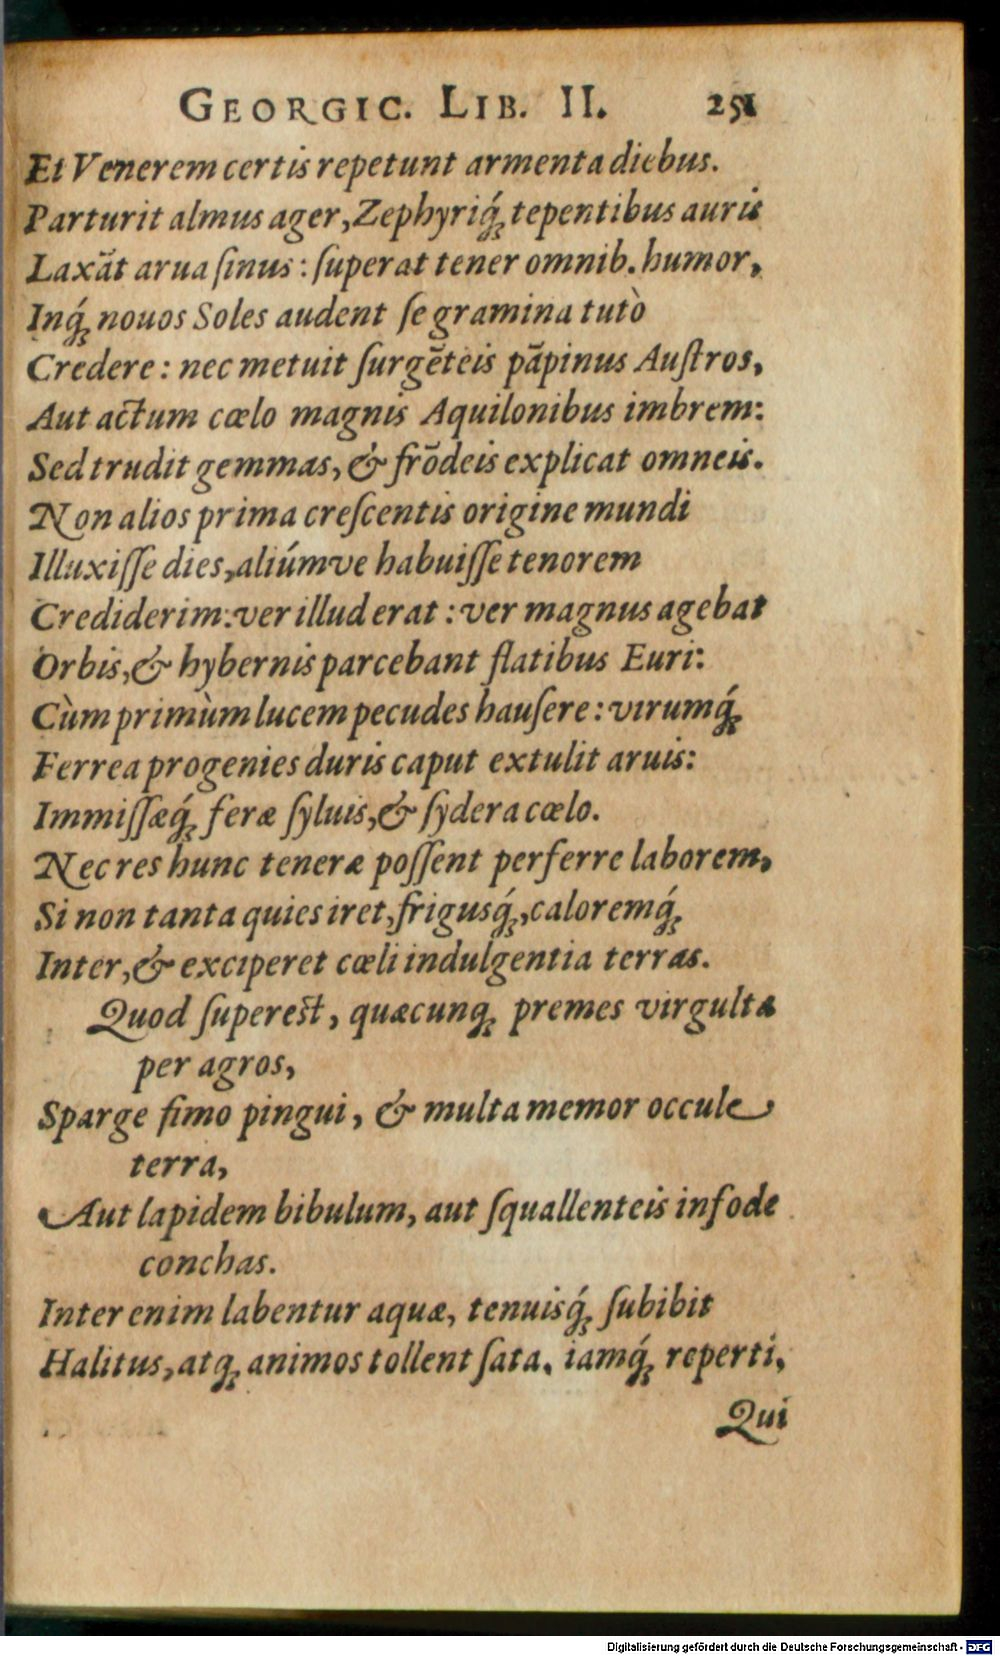 GEORGIC. LIB. II. 251
Et Venerem certis repetunt armenta diebus.
Parturit almus ager, Zephyriq́; tepentibus auris
Laxāt arua ſinus: ſuperat tener omnib. humor,
Inq́; nouos Soles audent ſe gramina tutò
Credere: nec metuit ſurgēteis pāpinus Auſtros,
Aut actum cœlo magnis Aquilonibus imbrem:
Sed trudit gemmas, & frōdeis explicat omneis.
Non alios prima creſcentis origine mundi
Illuxiſſe dies, aliúmve habuiſſe tenorem
Crediderim: ver illud erat: ver magnus agebat
Orbis, & hybernis parcebant flatibus Euri:
Cùm primùm lucem pecudes hauſere: virumq́;
Ferrea progenies duris caput extulit aruis:
Immiſſæq́; feræ ſyluis, & ſydera cœlo.
Nec res hunc teneræ poſſent perferre laborem,
Si non tanta quies iret, frigusq́;, caloremq́;
Inter, & exciperet cœli indulgentia terras.
Quod ſupereſt, quæcunq; premes virgulta
per agros,
Sparge fimo pingui, & multa memor occule
terra,
Aut lapidem bibulum, aut ſquallenteis infode
conchas.
Inter enim labentur aquæ, tenuisq́; ſubibit
Halitus, atq; animos tollent ſata. iamq́; reperti,
Qui
Digitalisierung gefördert durch die Deutsche Forschungsgemeinschaft - DFG